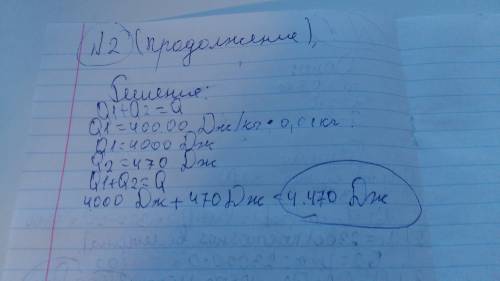 №2 (продолжение),
Решение:
Q1+Q2=Q
Q1=40000 Дж/кг · 0,01кг
Q1=4000 Дж
Q2=470 Дж
Q1+Q2=Q
4000 Дж+470 Дж=4.470 Дж